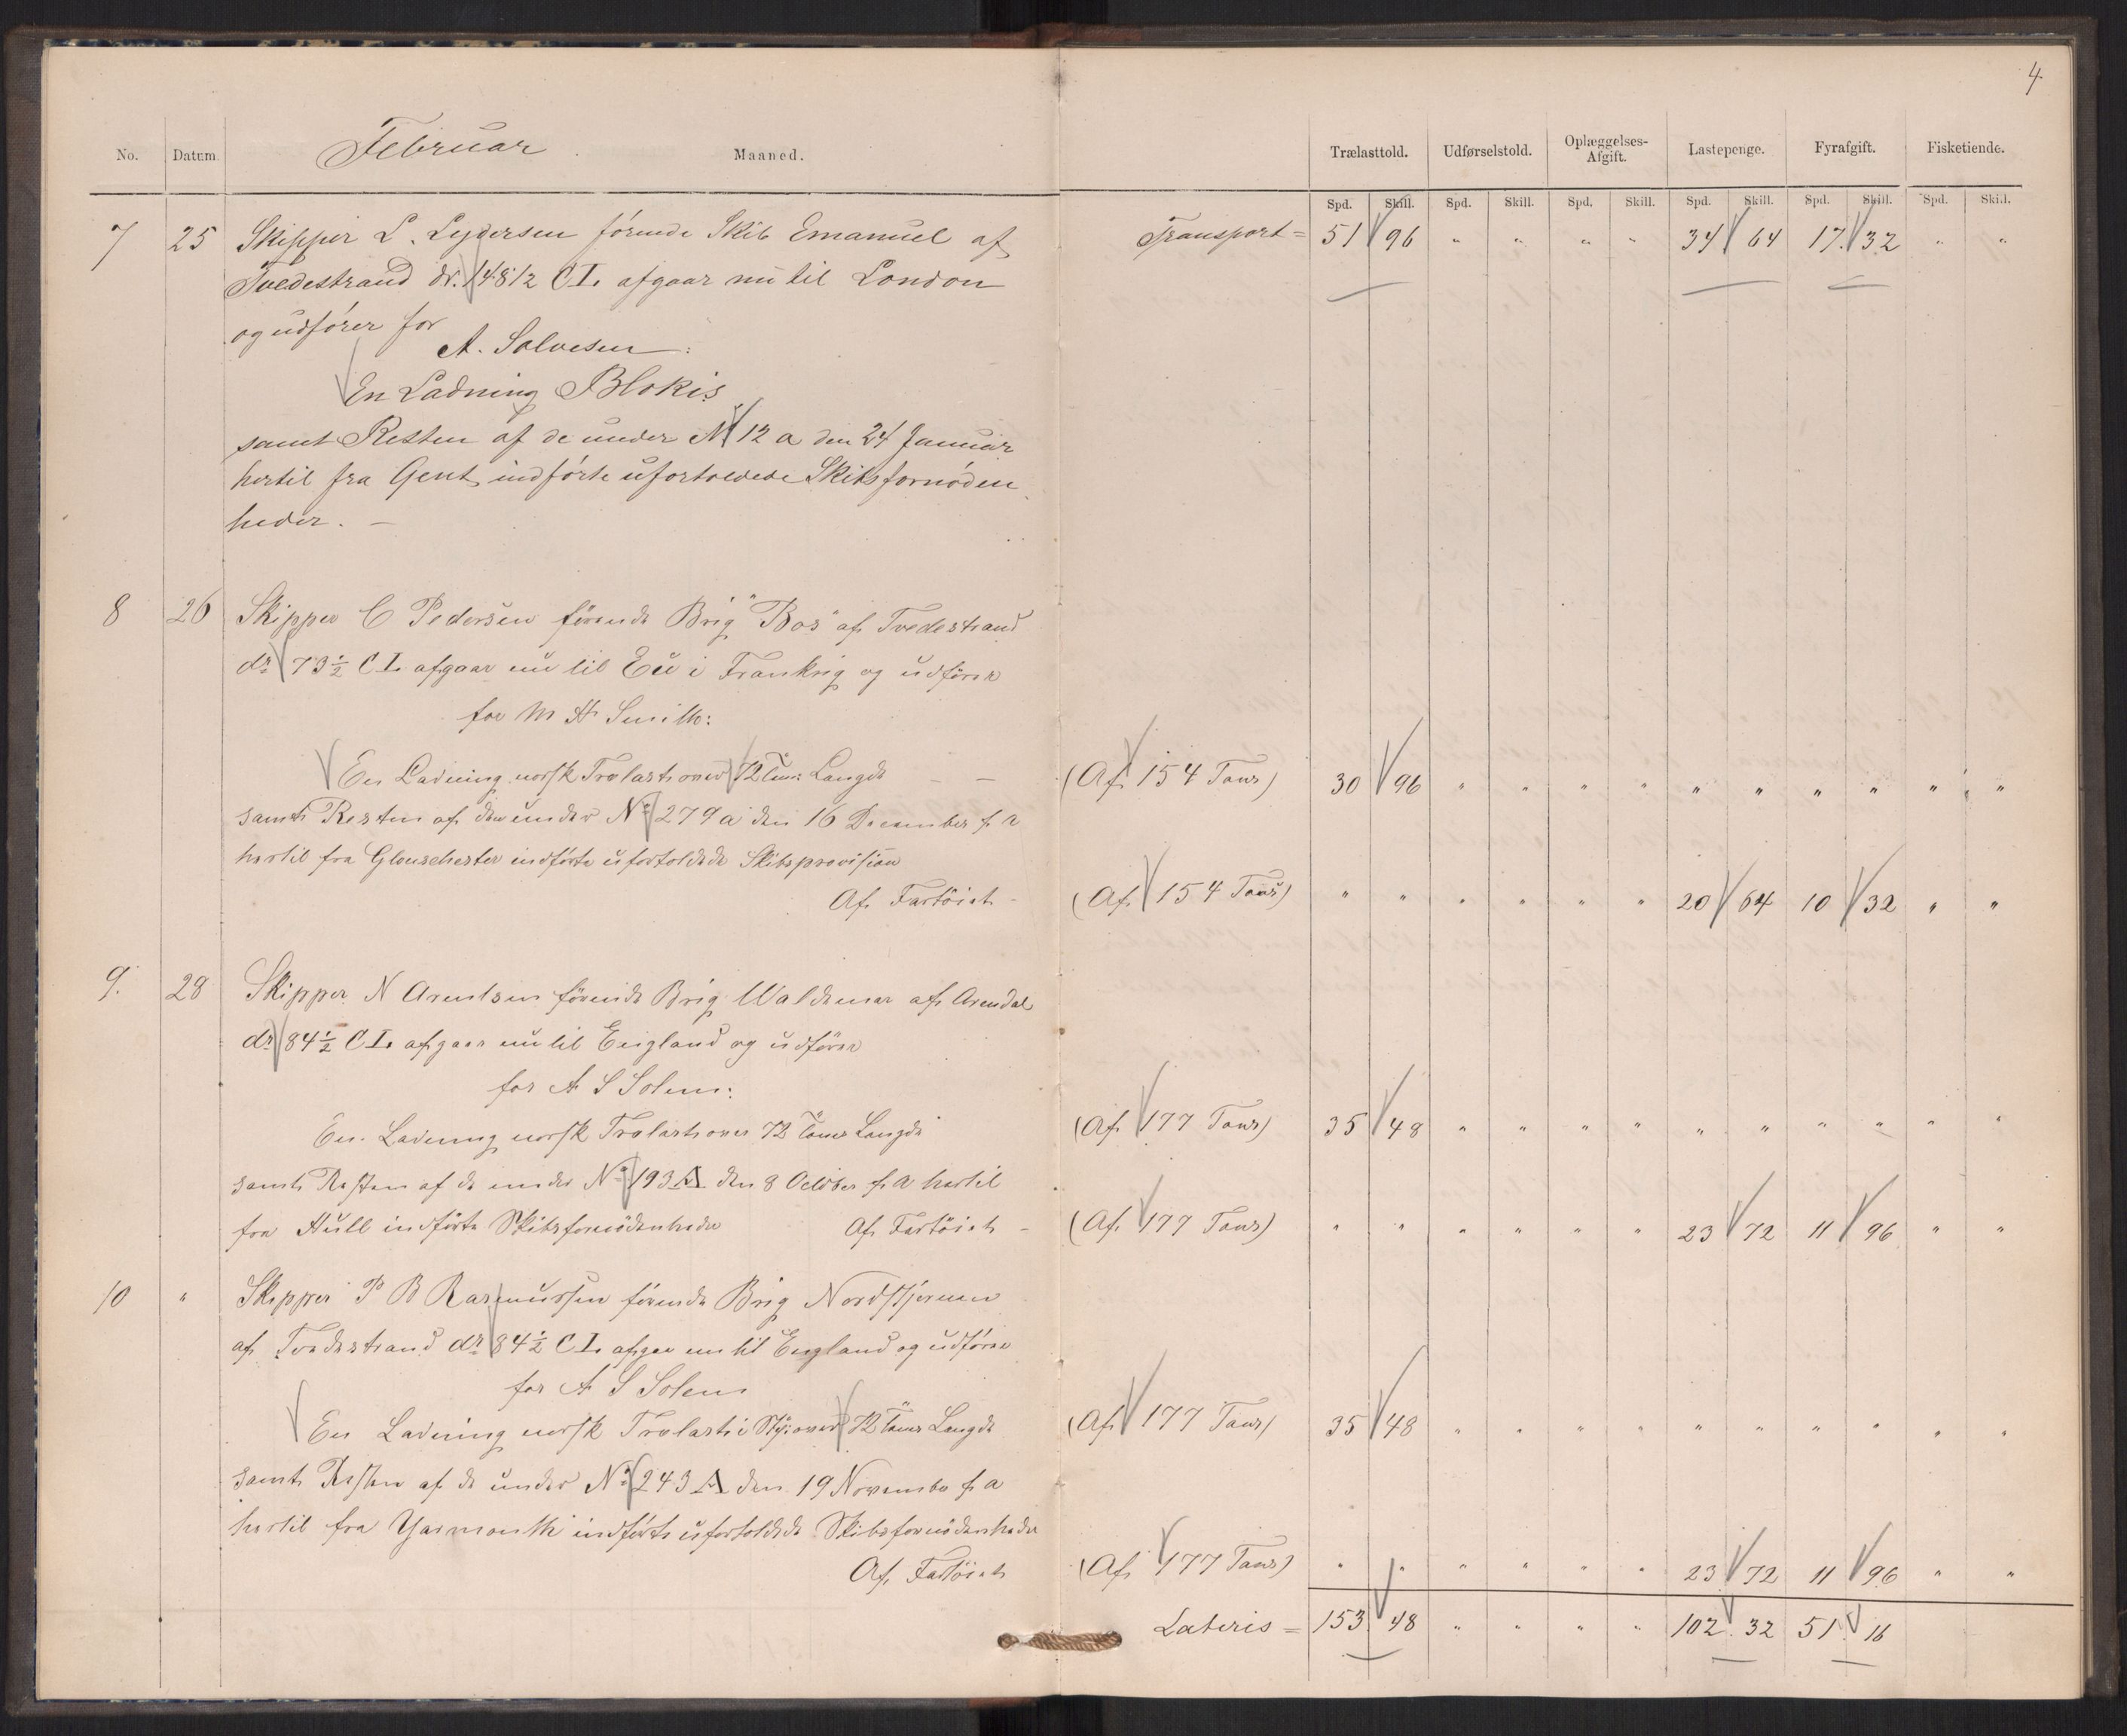 4.
No. Datum. Februar Maaned. Trælasttold. Udførselstold. Oplæggelses-Afgift. Lastepenge. Fyrafgift. Fisketiende.
Spd. Skill. Spd. Skill. Spd. Skill. Spd. Skill. Spd. Skill. Spd. Skill.
7 25 Skipper L. Lydersen förende Skib Emanuel af Transport = 51 96 " " " " 34 64 17. 32 " "
Tvedestrand dr. 148 1/2 CL. afgaar nu til London
og udfører for
A. Salvesen:
En Ladning Blokis
samt Resten af de under N 12 a den 24 Januar
hertil fra Gent indførte ufortoldede Skibsfornøden
heder. —
8 26 Skipper C Pedersen førende Brig "Bos" af Tvedestrand
dr 73 1/2 CL afgaar nu til Eu i Frankrig og udfører
for M H Smith:
En Ladning norsk Trælast over 72 Tom: Længde — — (Af 154 Tons) 30 96 " " " " " " " " " "
samt Resten af den under No 279 a den 16 December f a
hertil fra Glouschester indførte ufortoldede Skibsprovision
Af Fartöiet - (Af 154 Tons) " " " " " " 20 64 10 32 " "
9. 28 Skipper N Arentsen förende Brig Waldemar af Arendal
dr 84 1/2 CL. afgaar nu til England og udförer
for A S Solem:
En Ladning norsk Trælast over 72 Toms Længde (Af 177 Tons) 35 48 " " " " " " " " " "
samt Resten af de under No 193 A den 8 October f a hertil
fra Hull indförte Skibsfornödenheder Af Fartöiet - (Af 177 Tons) " " " " " " 23 72 11 96 " "
10 " Skipper P B Rasmussen förende Brig Nordstjernen
af Tvedestrand dr 84 1/2 CL. afgaar nu til England og udförer
for A S Solem
En Ladning norsk Trælast i Sty: over 72 Toms Længde (Af 177 Tons) 35 48 " " " " " " " " " "
samt Resten af de under No 243 A den 19 November f a
hertil fra Yarmouth indførte ufortoldede Skibsfornödenheder
Af Fartöiet (Af 177 Tons) " " " " " " 23 72 11 96 " "
Lateris = 153. 48 " " " " 102. 32 51. 16